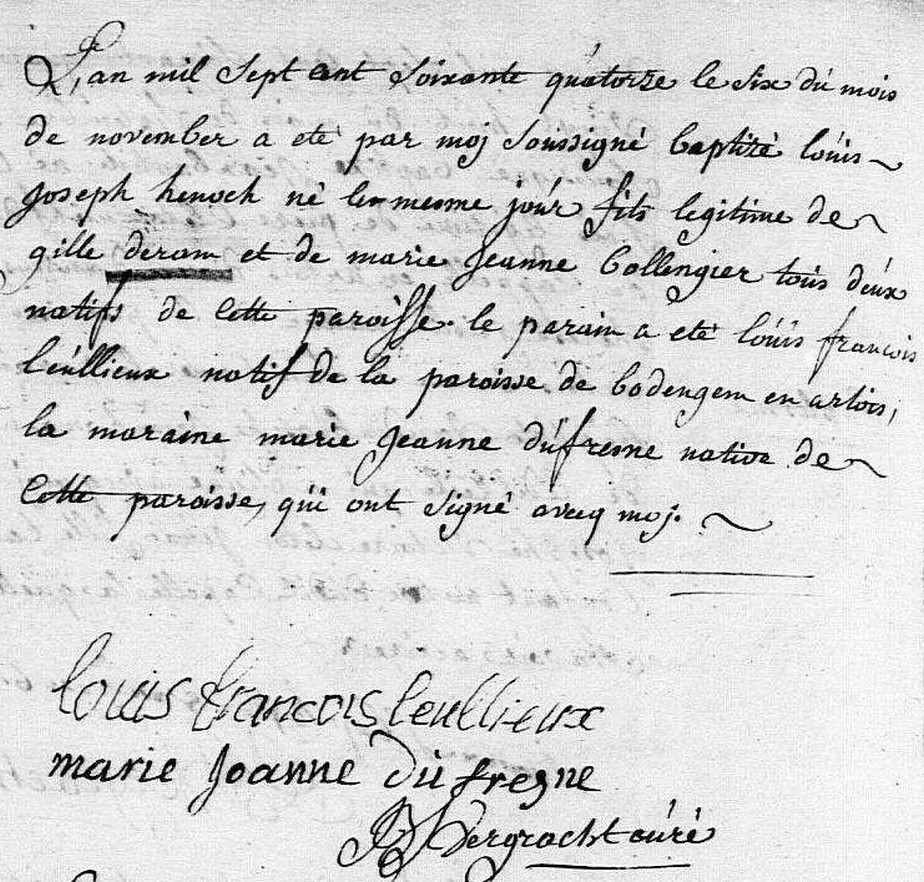 L'an mil sept cent soixante quatorze le six du mois
de november a eté par moj soussigné baptizé loüis
Joseph henoch né le mesme joúr fils legitime de
gille deram et de marie Jeanne bollengier tous deúx
natifs de cette paroisse. le parain a eté loúis francois
leúllieux natif de la paroisse de bodengem en artois,
la maraine marie Jeanne dúfresne native de
cette paroisse, qúi ont signé avecq moj.
louis francois leullieux
marie Joanne du fresne
Vergracht cúré